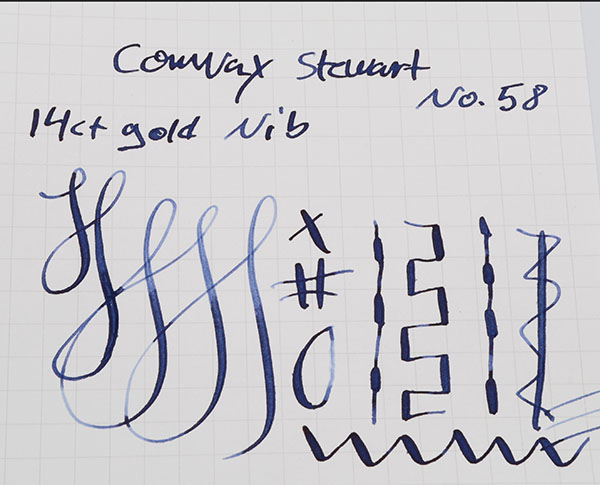 Conway Stewart
No. 58
14ct gold Nib